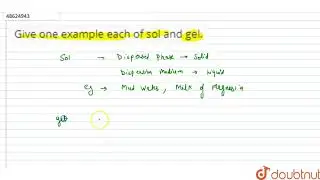 48624943
Give one example each of sol and gel.
Sol → Dispersed phase → Solid
Dispersion medium → Liquid
eg → Mud water, Milk of Magnesia
gel
doubtnut